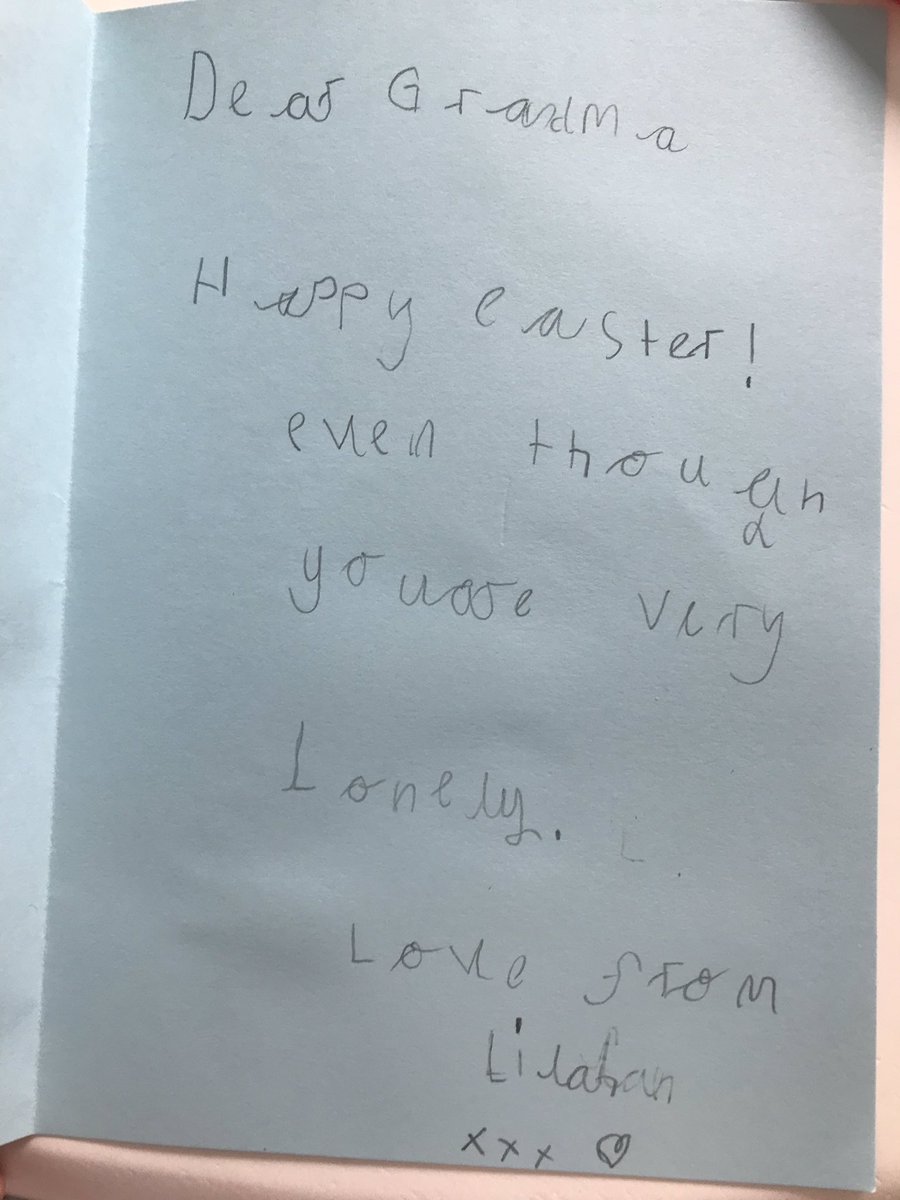 Dear Grandma
Happy easter!
even though
youare very
Lonely.
Love from
xxx